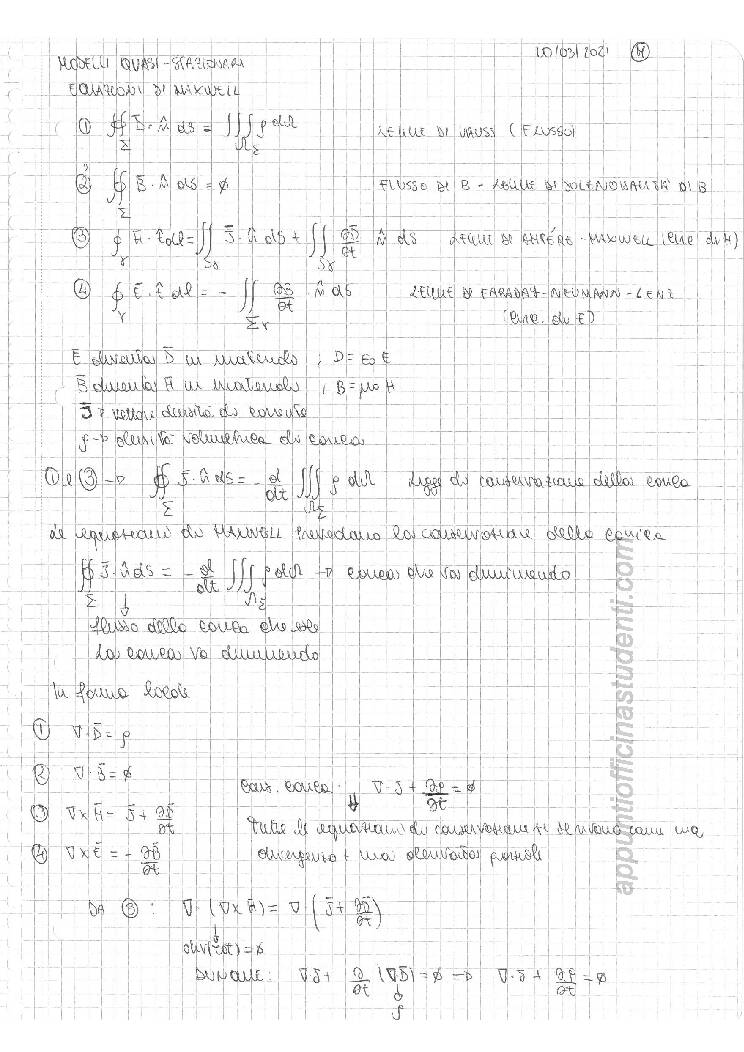 10/03/2021 (4)
MODELLI QUASI-STAZIONARI
EQUAZIONI DI MAXWELL
① ∯_Σ D̄·n̂ ds = ∭_ΩΣ ρ dΩ LEGGE DI GAUSS (FLUSSO)
② ∯_Σ B̄·n̂ ds = ∅ FLUSSO DI B - LEGGE DI SOLENOIDALITÀ DI B
③ ∮_γ H̄·t̂ dl = ∬_Sγ J̄·n̂ ds + ∬_Sγ ∂D̄/∂t n̂ ds LEGGE DI AMPÉRE-MAXWELL (circ di H)
④ ∮_γ Ē·t̂ dl = - ∬_Σγ ∂B̄/∂t · n̂ ds LEGGE DI FARADAY-NEUMANN-LENZ
(circ. di E)
Ē diventa D̄ in materiale ; D = ε0 E
B̄ diventa H̄ in materiale ; B = μ0 H
J̄ → vettore densità di corrente
ρ → densità volumetrica di carica
① e ③ → ∯_Σ J̄·n̂ ds = - d/dt ∭_ΩΣ ρ dΩ Legge di conservazione della carica
Le equazioni di MAXWELL prevedono la conservazione della carica
∯_Σ J̄·n̂ ds = - d/dt ∭_ΩΣ ρ dΩ → carica che va diminuendo
↓
flusso della carica che esce
La carica va diminuendo
In forma locale
① ∇·D̄ = ρ
② ∇·B̄ = ∅
Cons. carica: ∇·J + ∂ρ/∂t = ∅
③ ∇×H̄ = J̄ + ∂D̄/∂t
Tutte le equazioni di conservazione si scrivono come una
④ ∇×Ē = - ∂B̄/∂t
divergenza + una derivata parziale
DA ③ : ∇·(∇×H̄) = ∇·(J̄ + ∂D̄/∂t)
↓
div(rot) = ∅
DUNQUE: ∇J̄ + ∂/∂t (∇D̄) = ∅ → ∇·J + ∂ρ/∂t = ∅
↓
ρ
appuntiofficinastudenti.com